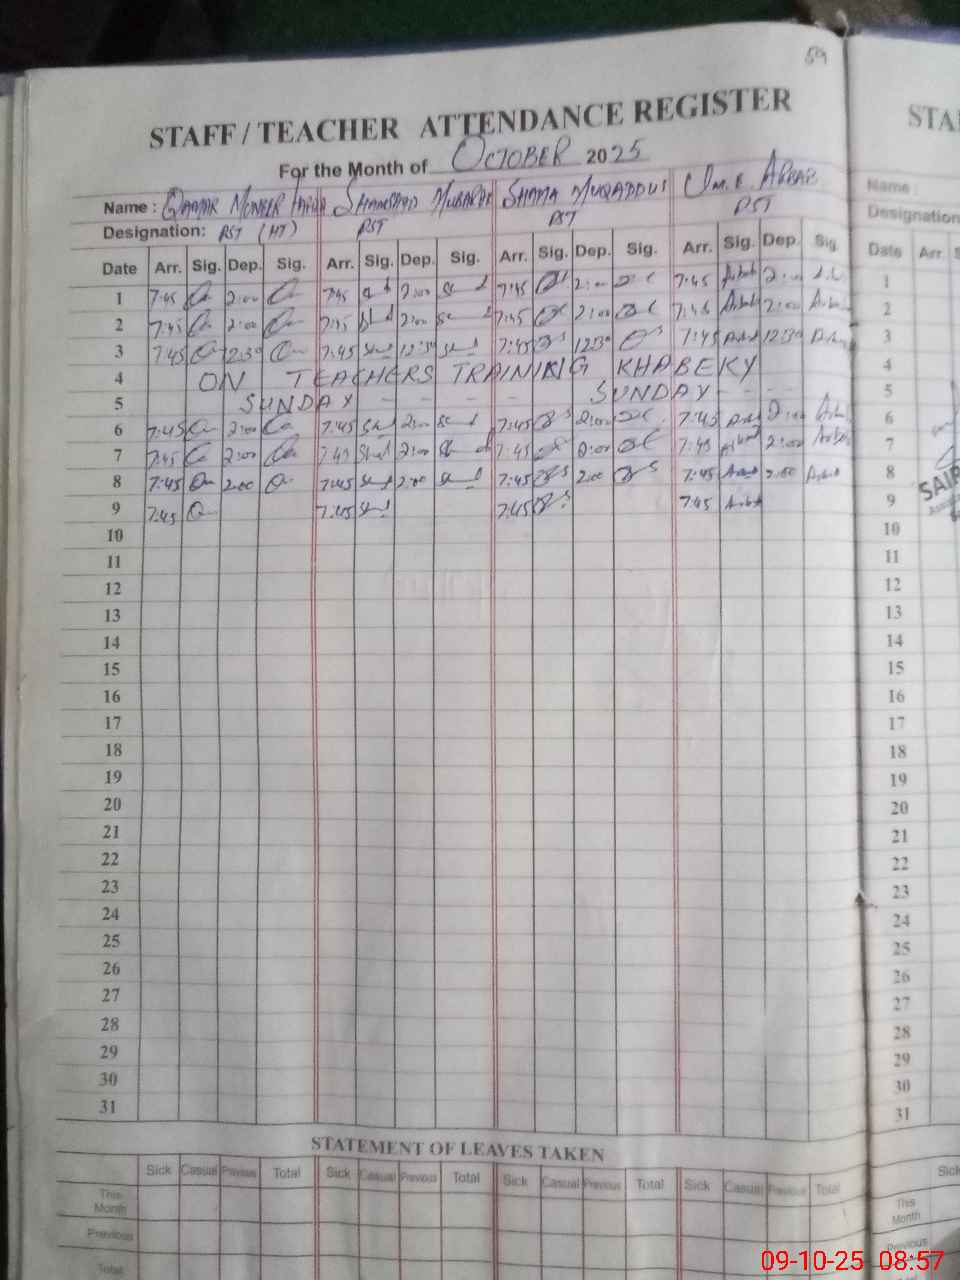 59
STAFF / TEACHER ATTENDANCE REGISTER
For the Month of OCTOBER 2025
Name : QAMAR MUNEER SHAMSHAD MUBARAK SHAMA MUQADDUS Um.E. ARBAB
Designation: PST (HT) PST PST PST
Date Arr. Sig. Dep. Sig. Arr. Sig. Dep. Sig. Arr. Sig. Dep. Sig. Arr. Sig. Dep. Sig.
1 7:45 2:00 7:45 2:00 7:45 2:00 7:45 2:00
2 7:45 2:00 7:45 2:00 7:45 2:00 7:45 2:00
3 7:45 12:30 7:45 12:30 7:45 12:30 7:45 12:30
4 ON TEACHERS TRAINING KHABEKY
5 SUNDAY - - - - SUNDAY - -
6 7:45 2:00 7:45 2:00 7:45 2:00 7:45 2:00
7 7:45 2:00 7:45 2:00 7:45 2:00 7:45 2:00
8 7:45 2:00 7:45 2:00 7:45 2:00 7:45 2:00
9 7:45 7:45 7:45 7:45
10
11
12
13
14
15
16
17
18
19
20
21
22
23
24
25
26
27
28
29
30
31
STATEMENT OF LEAVES TAKEN
Sick Casual Previous Total Sick Casual Previous Total Sick Casual Previous Total Sick Casual Previous Total
This Month
Previous
Total
STA
Name :
Designation
Date Arr. S
1
2
3
4
5
6
7
8
9
10
11
12
13
14
15
16
17
18
19
20
21
22
23
24
25
26
27
28
29
30
31
SAIF
Sick
This Month
Previous
09-10-25 08:57